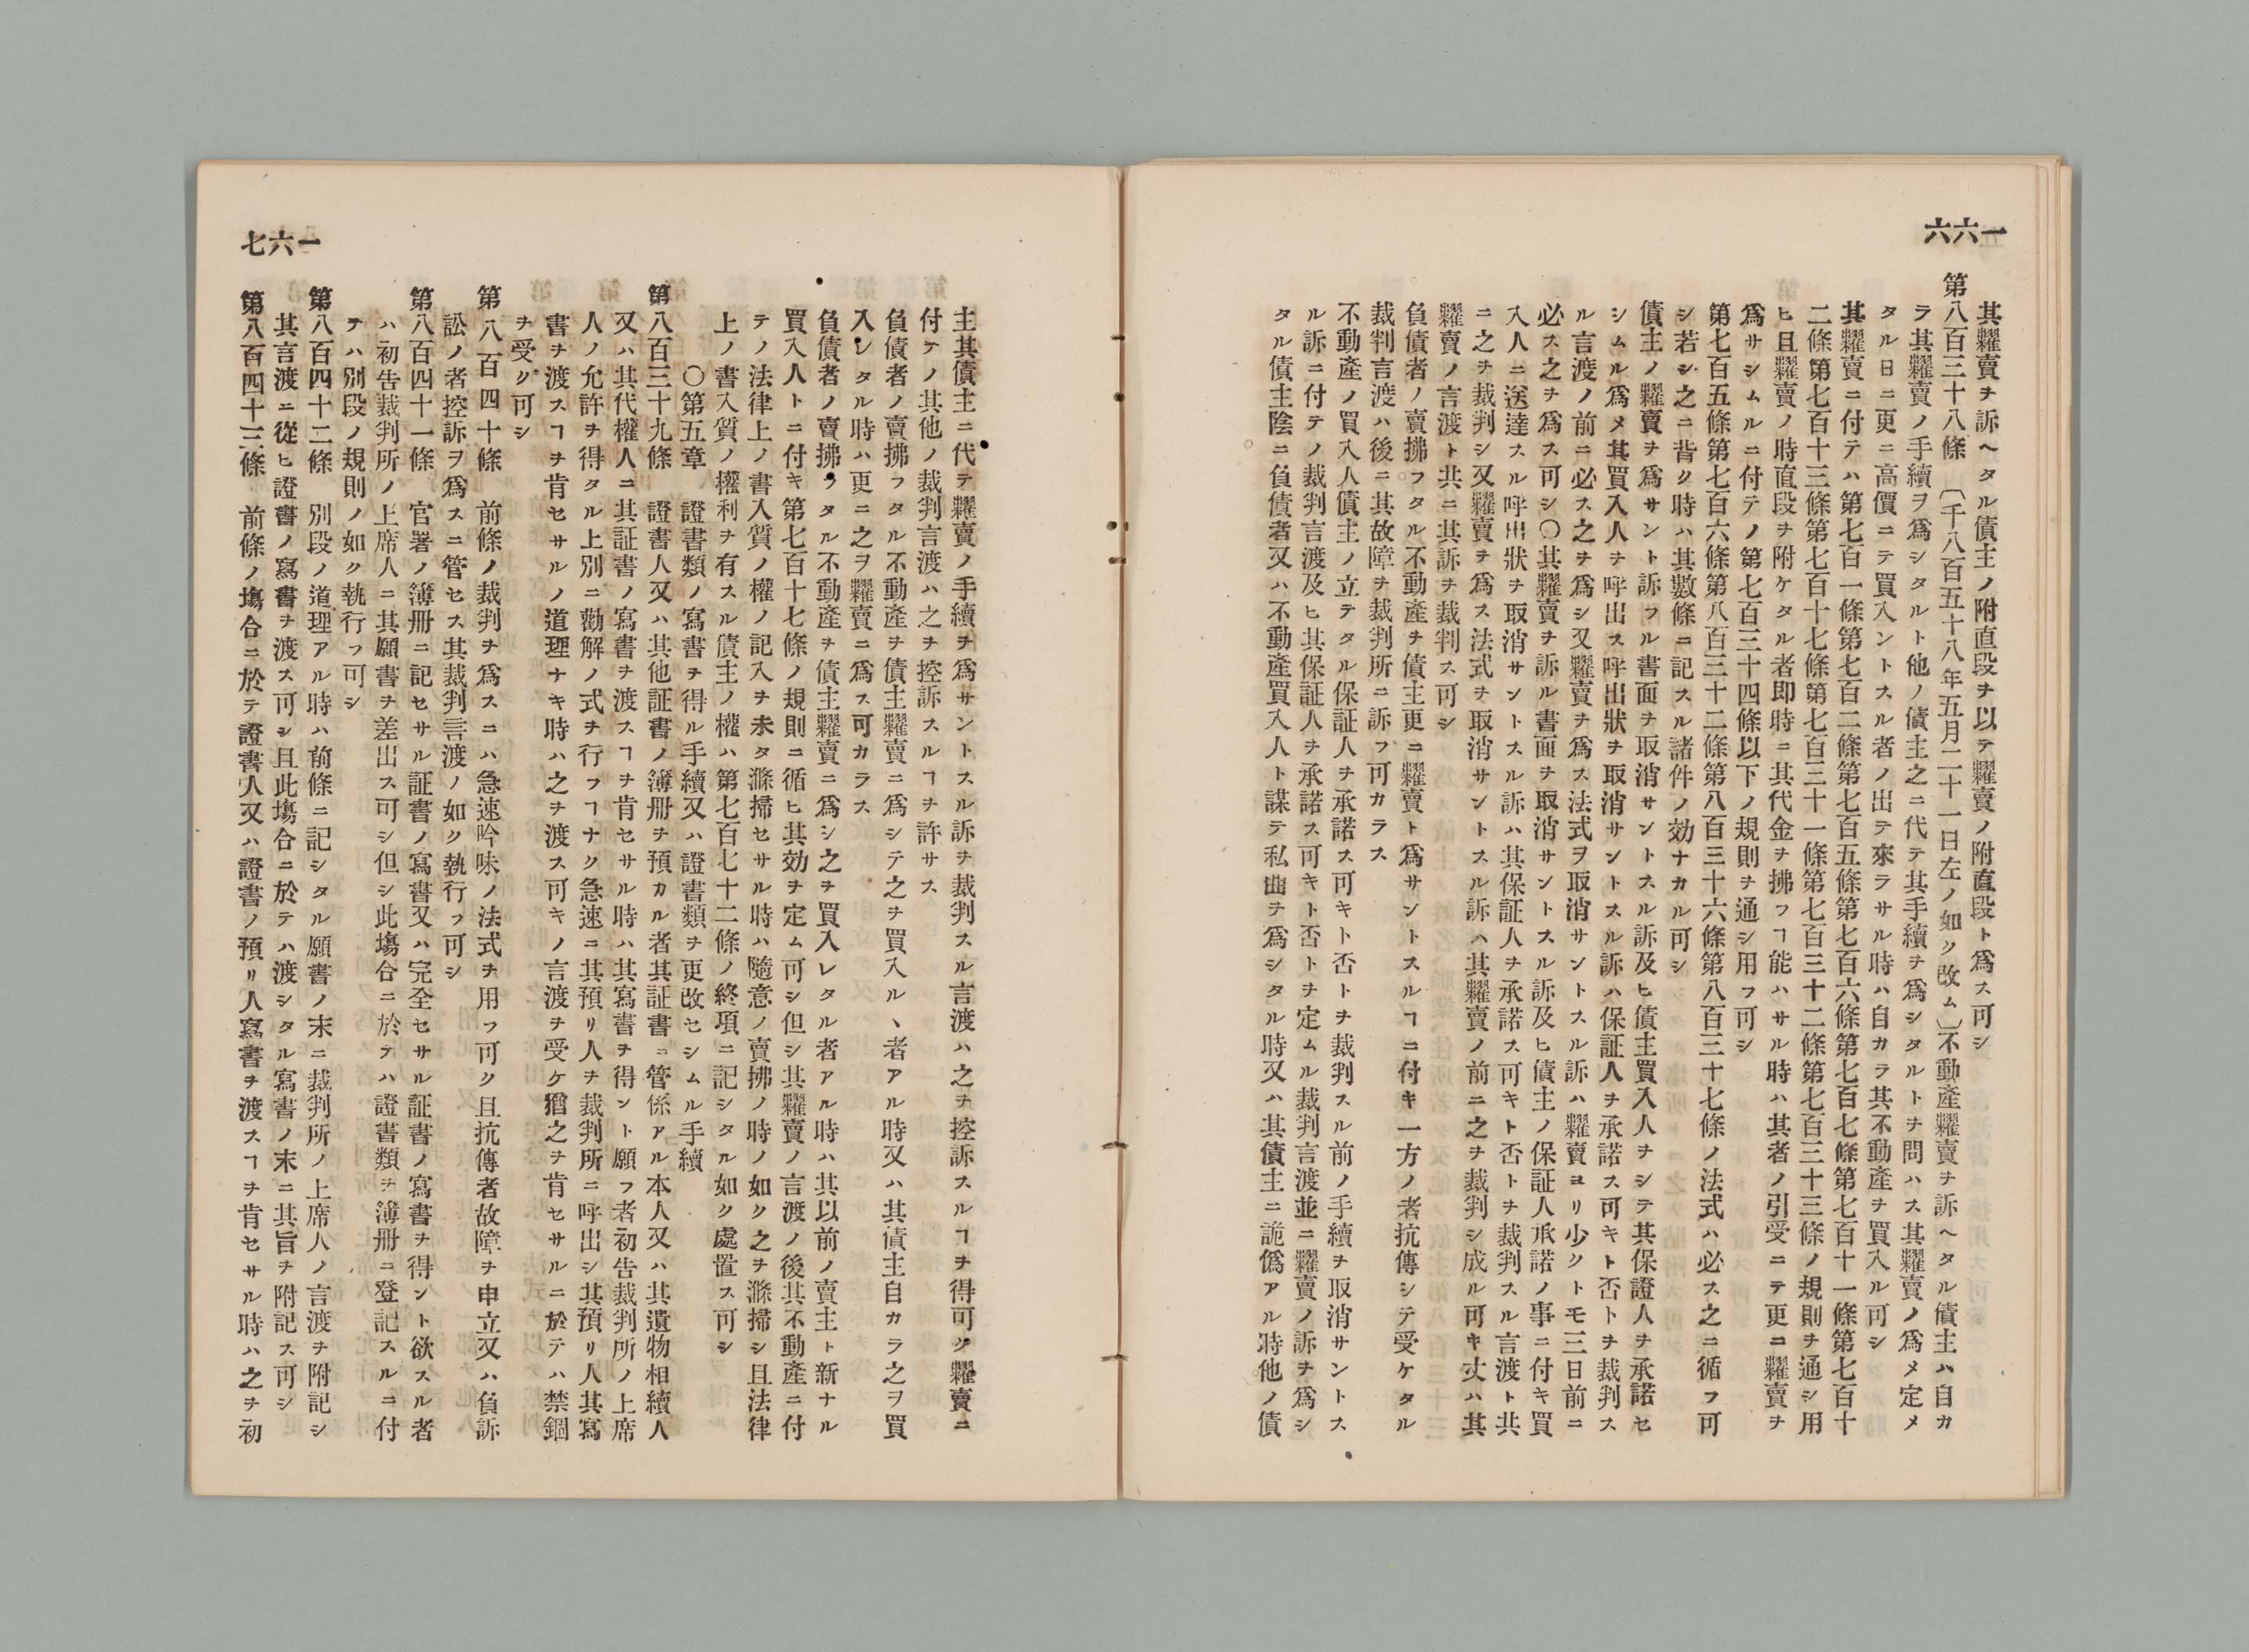 一六六
其糶賣ヲ訴ヘタル債主ノ附直段ヲ以テ糶賣ノ附直段ト爲ス可シ
第八百三十八條　〔千八百五十八年五月二十一日左ノ如ク改ム〕不動產糶賣ヲ訴ヘタル債主ハ自カ
ラ其糶賣ノ手續ヲ爲シタルト他ノ債主之ニ代テ其手續ヲ爲シタルトヲ問ハス其糶賣ノ爲メ定メ
タル日ニ更ニ高價ニテ買入ントスル者ノ出テ來ラサル時ハ自カラ其不動產ヲ買入ル可シ
其糶賣ニ付テハ第七百一條第七百二條第七百五條第七百六條第七百七條第七百十一條第七百十
二條第七百十三條第七百十七條第七百三十一條第七百三十二條第七百三十三條ノ規則ヲ通シ用
ヒ且糶賣ノ時直段ヲ附ケタル者即時ニ其代金ヲ拂フヿ能ハサル時ハ其者ノ引受ニテ更ニ糶賣ヲ
爲サシムルニ付テノ第七百三十四條以下ノ規則ヲ通シ用フ可シ
第七百五條第七百六條第八百三十二條第八百三十六條第八百三十七條ノ法式ハ必ス之ニ循フ可
シ若シ之ニ背ク時ハ其數條ニ記スル諸件ノ効ナカル可シ
債主ノ糶賣ヲ爲サント訴フル書面ヲ取消サントスル訴及ヒ債主買入人ヲシテ其保證人ヲ承諾セ
シムル爲メ其買入人ヲ呼出ス呼出狀ヲ取消サントスル訴ハ保証人ヲ承諾ス可キト否トヲ裁判ス
ル言渡ノ前ニ必ス之ヲ爲シ又糶賣ヲ爲ス法式ヲ取消サントスル訴ハ糶賣ヨリ少クトモ三日前ニ
必ス之ヲ爲ス可シ〇其糶賣ヲ訴ル書面ヲ取消サントスル訴及ヒ債主ノ保証人承諾ノ事ニ付キ買
入人ニ送達スル呼出狀ヲ取消サントスル訴ハ其保証人ヲ承諾ス可キト否トヲ裁判スル言渡ト共
ニ之ヲ裁判シ又糶賣ヲ爲ス法式ヲ取消サントスル訴ハ其糶賣ノ前ニ之ヲ裁判シ成ル可キ丈ハ其
糶賣ノ言渡ト共ニ其訴ヲ裁判ス可シ
負債者ノ賣拂フタル不動產ヲ債主更ニ糶賣ト爲サントスルヿニ付キ一方ノ者抗傳シテ受ケタル
裁判言渡ハ後ニ其故障ヲ裁判所ニ訴フ可カラス
不動產ノ買入人債主ノ立テタル保証人ヲ承諾ス可キト否トヲ裁判スル前ノ手續ヲ取消サントス
ル訴ニ付テノ裁判言渡及ヒ其保証人ヲ承諾ス可キト否トヲ定ムル裁判言渡並ニ糶賣ノ訴ヲ爲シ
タル債主陰ニ負債者又ハ不動產買入人ト謀テ私曲ヲ爲シタル時又ハ其債主ニ詭僞アル時他ノ債
一六七
主其債主ニ代テ糶賣ノ手續ヲ爲サントスル訴ヲ裁判スル言渡ハ之ヲ控訴スルヿヲ得可ク糶賣ニ
付テノ其他ノ裁判言渡ハ之ヲ控訴スルヿヲ許サス
負債者ノ賣拂フタル不動產ヲ債主糶賣ニ爲シテ之ヲ買入ル丶者アル時又ハ其債主自カラ之ヲ買
入レタル時ハ更ニ之ヲ糶賣ニ爲ス可カラス
負債者ノ賣拂フタル不動產ヲ債主糶賣ニ爲シ之ヲ買入レタル者アル時ハ其以前ノ賣主ト新ナル
買入人トニ付キ第七百十七條ノ規則ニ循ヒ其効ヲ定ム可シ但シ其糶賣ノ言渡ノ後其不動產ニ付
テノ法律上ノ書入質ノ權ノ記入ヲ未タ滌掃セサル時ハ隨意ノ賣拂ノ時ノ如ク之ヲ滌掃シ且法律
上ノ書入質ノ權利ヲ有スル債主ノ權ハ第七百七十二條ノ終項ニ記シタル如ク處置ス可シ
〇第五章　證書類ノ寫書ヲ得ル手續又ハ證書類ヲ更改セシムル手續
第八百三十九條　證書人又ハ其他証書ノ簿册ヲ預カル者其証書ニ管係アル本人又ハ其遺物相續人
又ハ其代權人ニ其証書ノ寫書ヲ渡スヿヲ肯セサル時ハ其寫書ヲ得ント願フ者初告裁判所ノ上席
人ノ允許ヲ得タル上別ニ勸解ノ式ヲ行フヿナク急速ニ其預リ人ヲ裁判所ニ呼出シ其預リ人其寫
書ヲ渡スヿヲ肯セサルノ道理ナキ時ハ之ヲ渡ス可キノ言渡ヲ受ケ猶之ヲ肯セサルニ於テハ禁錮
ヲ受ク可シ
第八百四十條　前條ノ裁判ヲ爲スニハ急速吟味ノ法式ヲ用フ可ク且抗傳者故障ヲ申立又ハ負訴
訟ノ者控訴ヲ爲スニ管セス其裁判言渡ノ如ク執行フ可シ
第八百四十一條　官署ノ簿册ニ記セサル証書ノ寫書又ハ完全セサル証書ノ寫書ヲ得ント欲スル者
ハ初告裁判所ノ上席人ニ其願書ヲ差出ス可シ但シ此塲合ニ於テハ證書類ヲ簿册ニ登記スルニ付
テハ別段ノ規則ノ如ク執行フ可シ
第八百四十二條　別段ノ道理アル時ハ前條ニ記シタル願書ノ末ニ裁判所ノ上席人ノ言渡ヲ附記シ
其言渡ニ從ヒ證書ノ寫書ヲ渡ス可シ且此塲合ニ於テハ渡シタル寫書ノ末ニ其旨ヲ附記ス可シ
第八百四十三條　前條ノ塲合ニ於テ證書人又ハ證書ノ預リ人寫書ヲ渡スヿヲ肯セサル時ハ之ヲ初